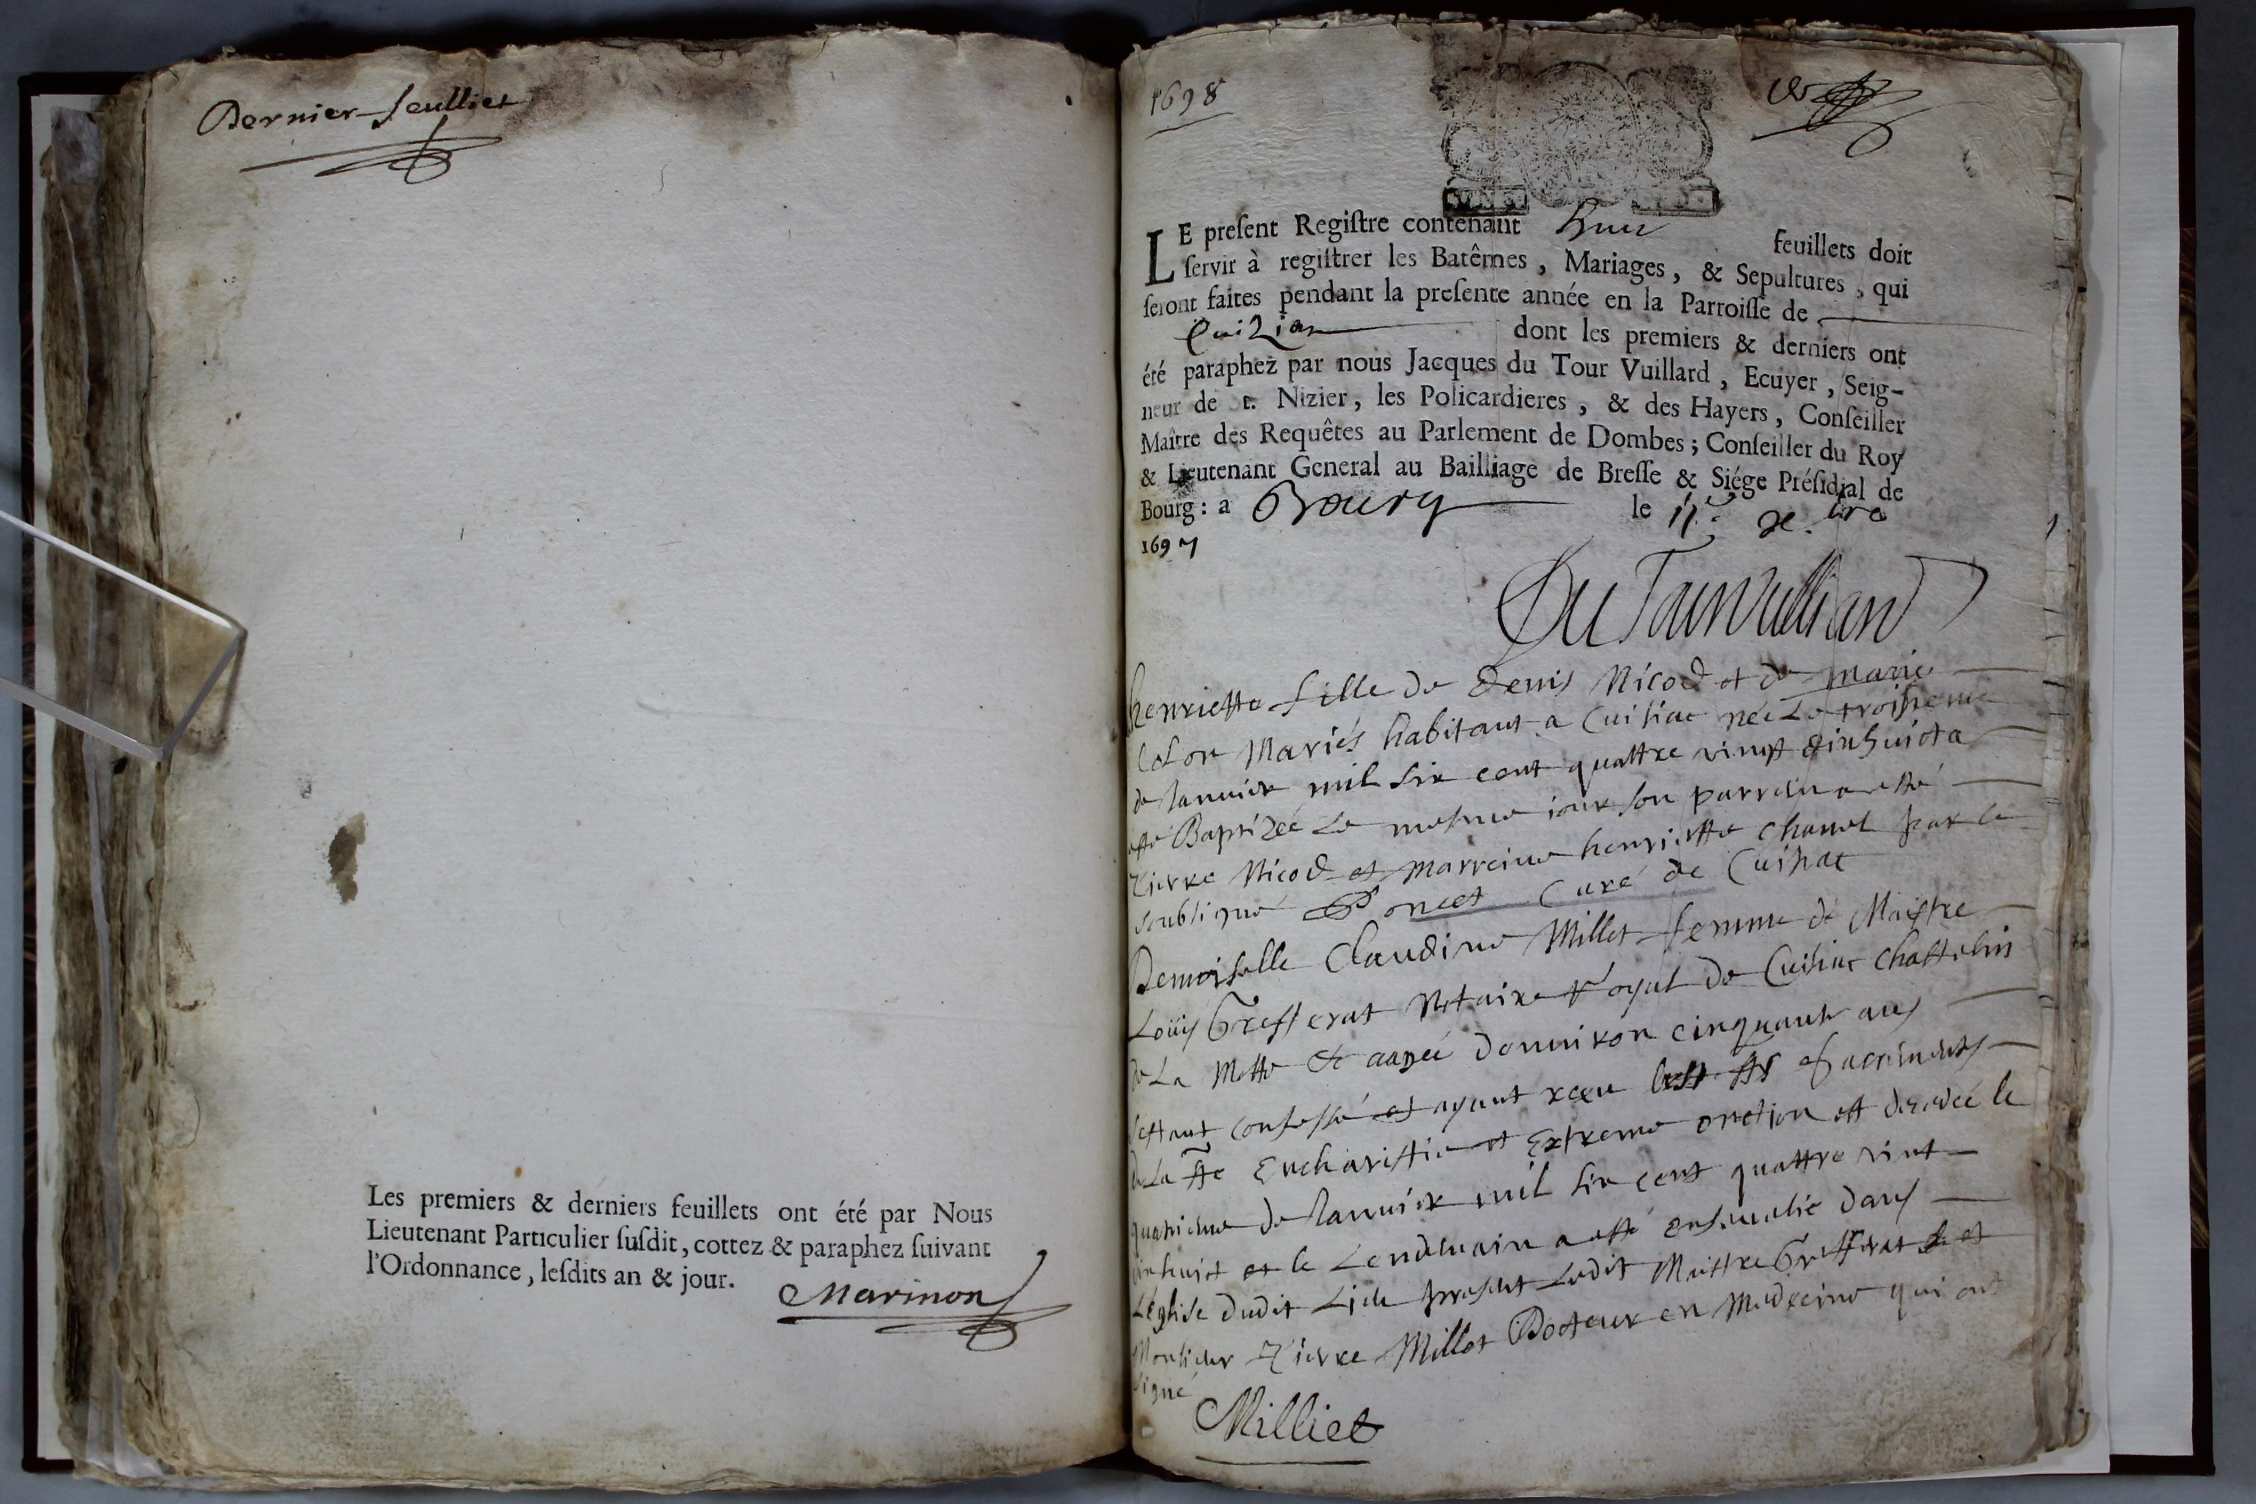 Dernier feulliet
Les premiers & derniers feuillets ont été par Nous
Lieutenant Particulier suſdit, cottez & paraphez ſuivant
l'Ordonnance, leſdits an & jour.
Marinon
1698
LE preſent Regiſtre contenant huit feuillets doit
ſervir à regiſtrer les Batêmes, Mariages, & Sepultures, qui
ſeront faites pendant la preſente année en la Parroiſſe de
dont les premiers & derniers ont
été paraphez par nous Jacques du Tour Vuillard, Ecuyer, Seig-
neur de St. Nizier, les Policardieres, & des Hayers, Conſeiller
Maître des Requêtes au Parlement de Dombes; Conſeiller du Roy
& Lieutenant General au Bailliage de Breſſe & Siége Préſidial de
Bourg: a Bourg le
1697
Du Tour Vuilliard
henriette fille de denis Nicod et de marie
Colon Mariés habitant a Cuisiat née Le troisieme
de Janvier mil six cent quattre vingt dixhuict a
esté Baptizée Le mesme jour son parrein a esté
Pierre Nicod et marreine henriette chanel par le
soubsigné Poncet Curé de Cuisiat
Demoiselle Claudine Millet femme de Maistre
Loüis Grefferat Notaire Royal de Cuisiat Chattelin
de La Motte aagée denviron cinquante ans
sestant confessé et ayant receu les sacrements
de La ste Eucharistie et Extreme onction est decedée le
quatrieme de Janvier mil six cent quattre vint
dixhuict et le Lendemain a esté ensevelie dans
L'église dudit Lieu present Ledit Maittre Grefferat et
Monsieur Pierre Millet Docteur en Medecine qui ont
signé
Milliet